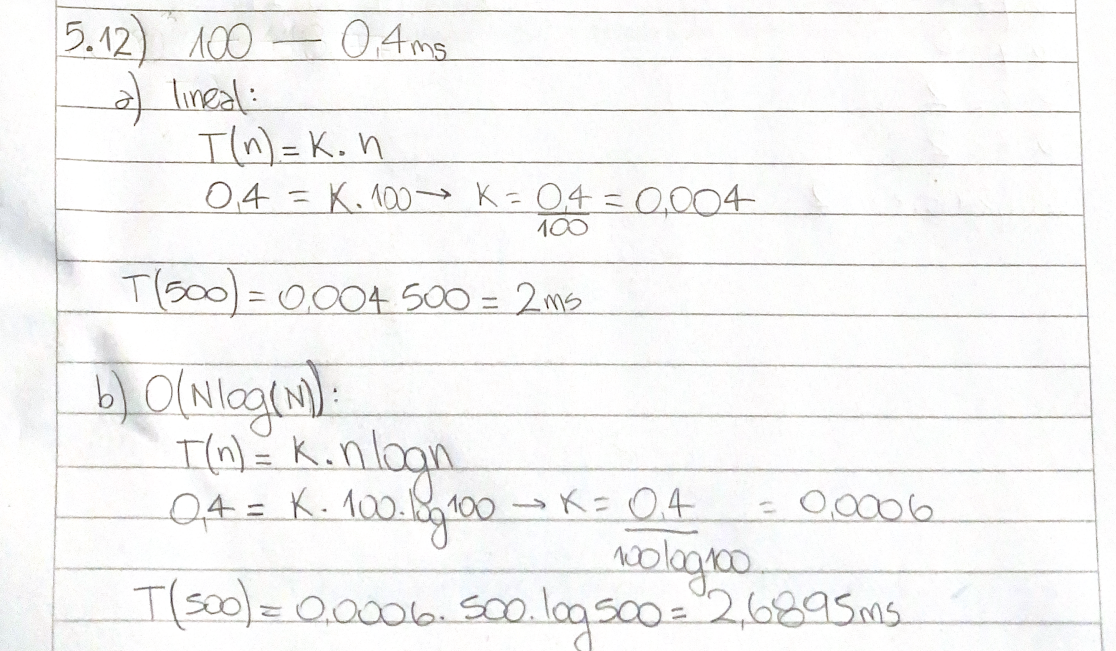 5.12) 100 — 0,4ms
a) lineal:
T(n) = K. n
0,4 = K. 100 → K = 0,4/100 = 0,004
T(500) = 0,004 500 = 2ms
b) O(Nlog(N)):
T(n) = K. n logn
0,4 = K. 100. log 100 → K = 0,4/100 log 100 = 0,0006
T(500) = 0,0006. 500. log 500 = 2,6895ms